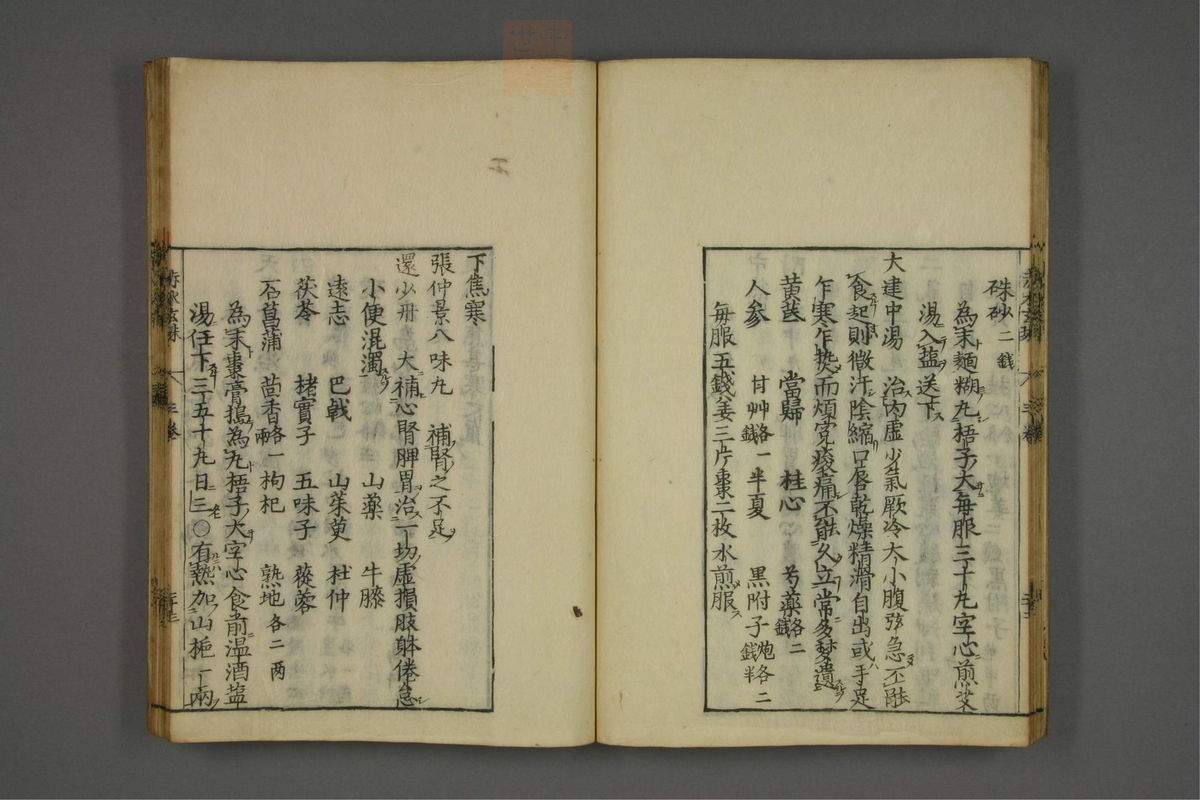 硃砂二錢
為末麵糊丸梧子大每服三十丸空心煎
湯入盐送下
大建中湯 治内虚少氣厥冷大小腹弦急不能
食起則微汗陰縮口唇乾燥精滑自出或手足
乍寒乍热而煩寃痠痛不能久立常多梦遺
黄芪 當歸 桂心 芍薬各二錢
人参 甘艸各一錢 半夏 黒附子炮各二錢半
毎服五錢姜三片棗二枚水煎服
下焦寒
張仲景八味丸 補腎之不足
還少丹 大補心腎脾胃治一切虚損肢躰倦怠
小便混濁 山薬 牛膝
遠志 巴戟 山茱萸 杜仲
茯苓 楮實子 五味子 蓯蓉
石菖蒲 茴香各一兩 枸杞 熟地各二两
為末棗膏搗為丸梧子大空心食前温酒盐
湯任下三五十丸日三〇有熱加山梔一兩
赤水玄珠 三卷